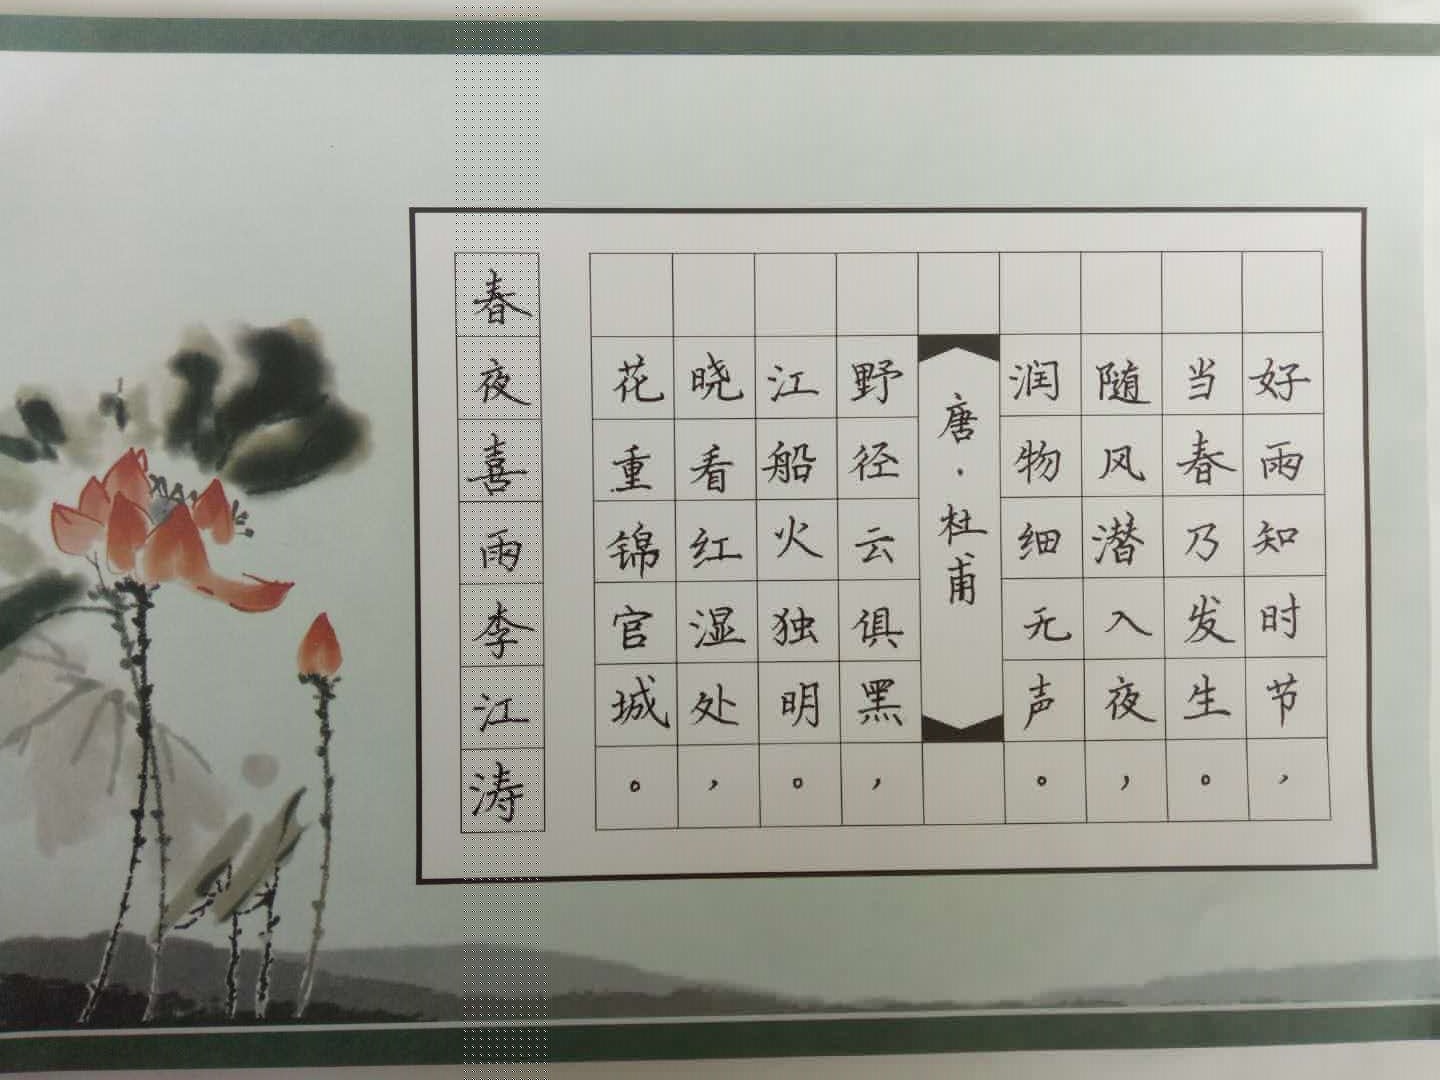 好雨知时节，
当春乃发生。
随风潜入夜，
润物细无声。
唐·杜甫
野径云俱黑，
江船火独明。
晓看红湿处，
花重锦官城。
春夜喜雨李江涛